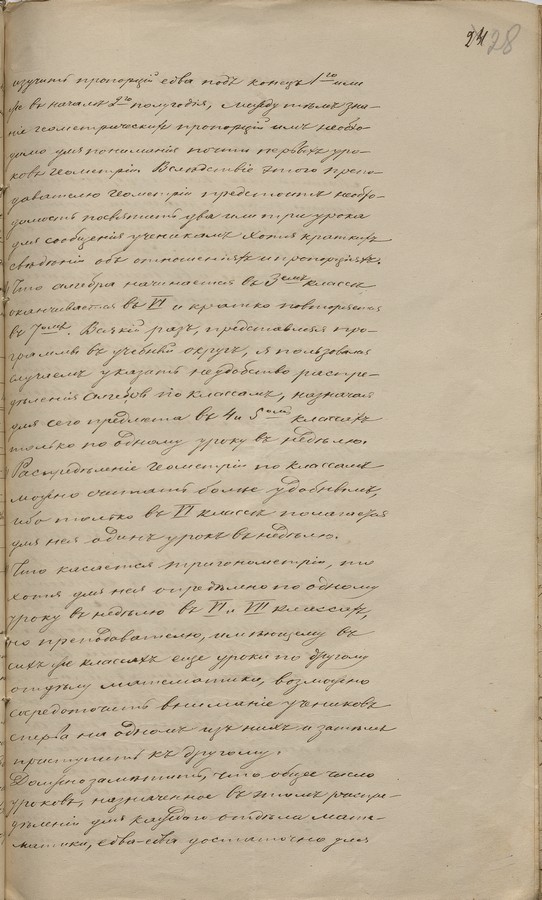 24 28
изучить пропорцій едва подъ конецъ 1го или
же въ началѣ 2го полугодія, между тѣмъ зна-
ніе геометрическихъ пропорцій имъ необхо-
димо для пониманія почти первыхъ уро-
ковъ геометріи. Вслѣдствіе этого препо-
давателю геометріи предстоитъ необхо-
димость посвятить два или три урока
для сообщенія ученикамъ хотя краткихъ
свѣдѣній объ отношеніяхъ и пропорціяхъ.
Что алгебра начинается въ 3емъ классѣ
оканчивается въ VI и кратко повторяется
въ 7омъ. Всякій разъ, представляя про-
граммы въ учебный округъ, я пользовался
случаемъ указать неудобство распре-
дѣленія алгебры по классамъ, назначая
для сего предмета въ 4 и 5омъ классахъ
только по одному уроку въ недѣлю.
Распредѣленіе геометріи по классамъ
можно считать болѣе удобнымъ,
ибо только въ VI классѣ полагается
для нея одинъ урокъ въ недѣлю.
Что касается тригонометріи, то
хотя для нея опредѣлено по одному
уроку въ недѣлю въ VI и VII классахъ,
но преподавателю, имѣющему въ
сихъ же классахъ еще уроки по другому
отдѣлу математики, возможно
сосредоточить вниманіе учениковъ
сперва на одномъ изъ нихъ и затѣмъ
приступить къ другому.
Должно замѣтить, что общее число
уроковъ, назначенное въ этомъ распре-
дѣленіи для каждаго отдѣла мате-
матики, едва-едва достаточно для